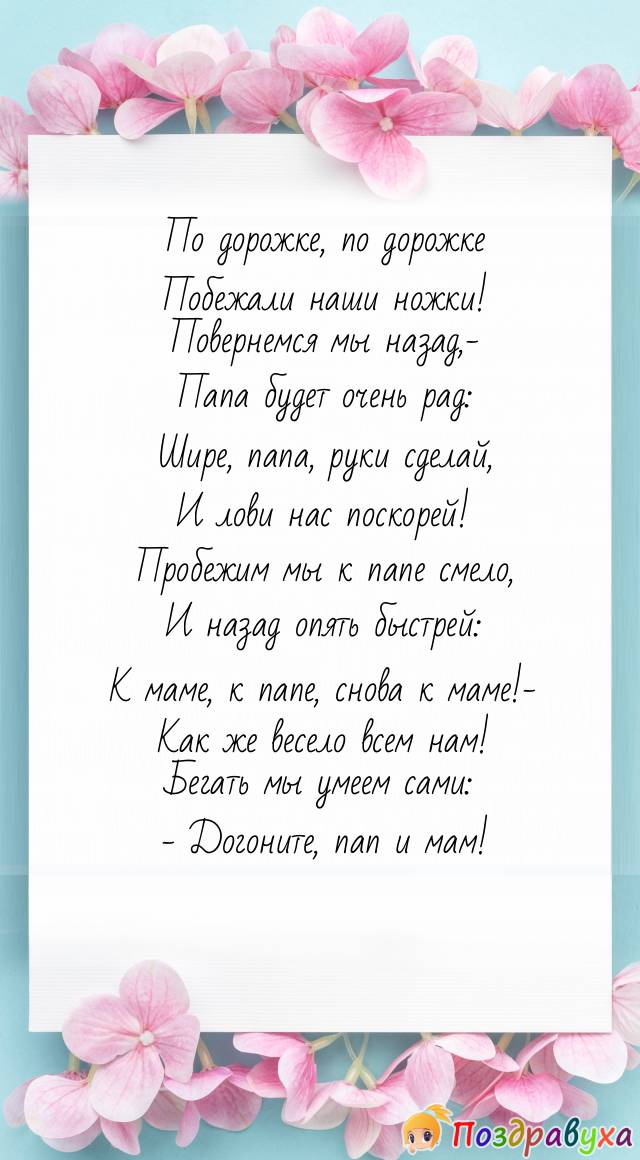 По дорожке, по дорожке
Побежали наши ножки!
Повернемся мы назад,-
Папа будет очень рад:
Шире, папа, руки сделай,
И лови нас поскорей!
Пробежим мы к папе смело,
И назад опять быстрей:
К маме, к папе, снова к маме!-
Как же весело всем нам!
Бегать мы умеем сами:
- Догоните, пап и мам!
Поздравуха